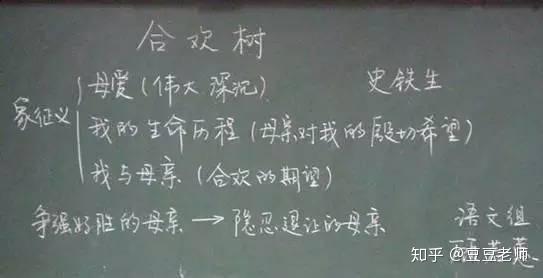 合欢树
史铁生
象征义
母爱(伟大 深沉)
我的生命历程(母亲对我的殷切希望)
我与母亲(合欢的期望)
争强好胜的母亲→隐忍退让的母亲
语文组
知乎 @豆豆老师